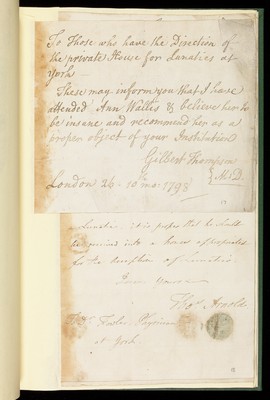 To Those who have the Direction of
the private House for Lunatics at
York —
These may inform you that I have
attended Ann Walles & believe her to
be insane and recommend her as a
proper object of your Institution
Gilbert Thompson
M:D.
London 26 - 10 mo: 1798
a Lunatic. it is proper that he shall
be received into a house appropriated
for the reception of Lunatics.
Thos. Arnold
Physician
at York.